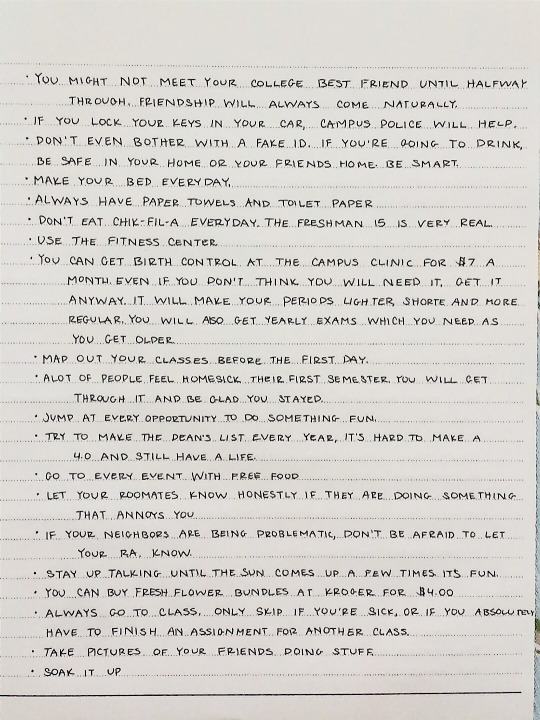 · YOU MIGHT NOT MEET YOUR COLLEGE BEST FRIEND UNTIL HALFWAY
THROUGH. FRIENDSHIP WILL ALWAYS COME NATURALLY.
· IF YOU LOCK YOUR KEYS IN YOUR CAR, CAMPUS POLICE WILL HELP.
· DON'T EVEN BOTHER WITH A FAKE ID. IF YOU'RE GOING TO DRINK,
BE SAFE IN YOUR HOME OR YOUR FRIENDS HOME. BE SMART.
· MAKE YOUR BED EVERYDAY.
· ALWAYS HAVE PAPER TOWELS AND TOILET PAPER
· DON'T EAT CHIK-FIL-A EVERYDAY. THE FRESHMAN 15 IS VERY REAL.
· USE THE FITNESS CENTER
· YOU CAN GET BIRTH CONTROL AT THE CAMPUS CLINIC FOR $7 A
MONTH. EVEN IF YOU DON'T THINK YOU WILL NEED IT, GET IT
ANYWAY. IT WILL MAKE YOUR PERIODS LIGHTER, SHORTE AND MORE
REGULAR. YOU WILL ALSO GET YEARLY EXAMS WHICH YOU NEED AS
YOU GET OLDER.
· MAP OUT YOUR CLASSES BEFORE THE FIRST DAY.
· ALOT OF PEOPLE FEEL HOMESICK THEIR FIRST SEMESTER. YOU WILL GET
THROUGH IT AND BE GLAD YOU STAYED.
· JUMP AT EVERY OPPORTUNITY TO DO SOMETHING FUN.
· TRY TO MAKE THE DEAN'S LIST EVERY YEAR, IT'S HARD TO MAKE A
4.0 AND STILL HAVE A LIFE.
· GO TO EVERY EVENT WITH FREE FOOD
· LET YOUR ROOMATES KNOW HONESTLY IF THEY ARE DOING SOMETHING
THAT ANNOYS YOU
· IF YOUR NEIGHBORS ARE BEING PROBLEMATIC, DON'T BE AFRAID TO LET
YOUR RA. KNOW.
· STAY UP TALKING UNTIL THE SUN COMES UP A FEW TIMES. ITS FUN.
· YOU CAN BUY FRESH FLOWER BUNDLES AT KROGER FOR $4.00
· ALWAYS GO TO CLASS. ONLY SKIP IF YOU'RE SICK, OR IF YOU ABSOLUTELY
HAVE TO FINISH AN ASSIGNMENT FOR ANOTHER CLASS.
· TAKE PICTURES OF YOUR FRIENDS DOING STUFF
· SOAK IT UP